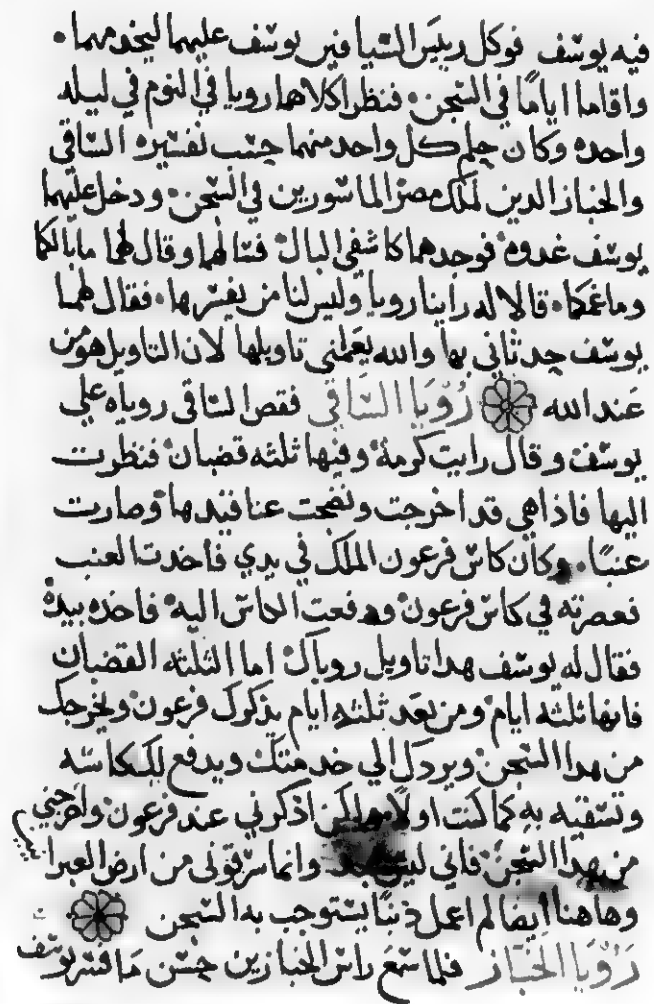 فيه يوسف فوكل رييس السيافين يوسف عليهما ليخدمهما
واقاما اياما في السجن فنظرا كلاهما رويا في النوم في ليله
واحده وكان حلم كل واحد منهما حسب تفسيره الساقي
والخباز الدين لملك مصر الماسورين في السجن ودخل عليهما
يوسف غدوه فوجدهما كاسفي البال فسالهما وقال لهما ما بالكما
وما غمكما قالا له راينا رويا وليس لنا من يفسرها فقال لهما
يوسف حدثاني بها والله يعلمني تاويلها لان التاويل هو من
عند الله رُويَا السَّاقي فقص الساقى روياه علي
يوسف وقال رايت كرمة وفيها ثلثه قضبان فنظرت
اليها فاداهي قد اخرجت ونضجت عنا قيدها وصارت
عنبًا وكان كاس فرعون الملك في يدي فاخدت العنب
فعصرته في كاس فرعون ودفعت الكاس اليه فاخده بيده
فقال له يوسف هدا تاويل روياك اما الثلثه القضبان
فانها ثلثه ايام ومن بعد ثلثه ايام يدكرك فرعون ويخرجك
من هدا السجن ويردك الي خدمتك ويدفع للملك كاسه
وتسقيه به كما كنت اولًا ولكن ادكرني عند فرعون واخرجني
من هدا السجن فاني وانما سرقونى من ارض العبرا
وهاهنا ايضا لم اعمل دنبًا يستوجب به السجن
رُويَا الخَبَّاز فلما سمع راس الخبازين حسن مَا فسر يوسف